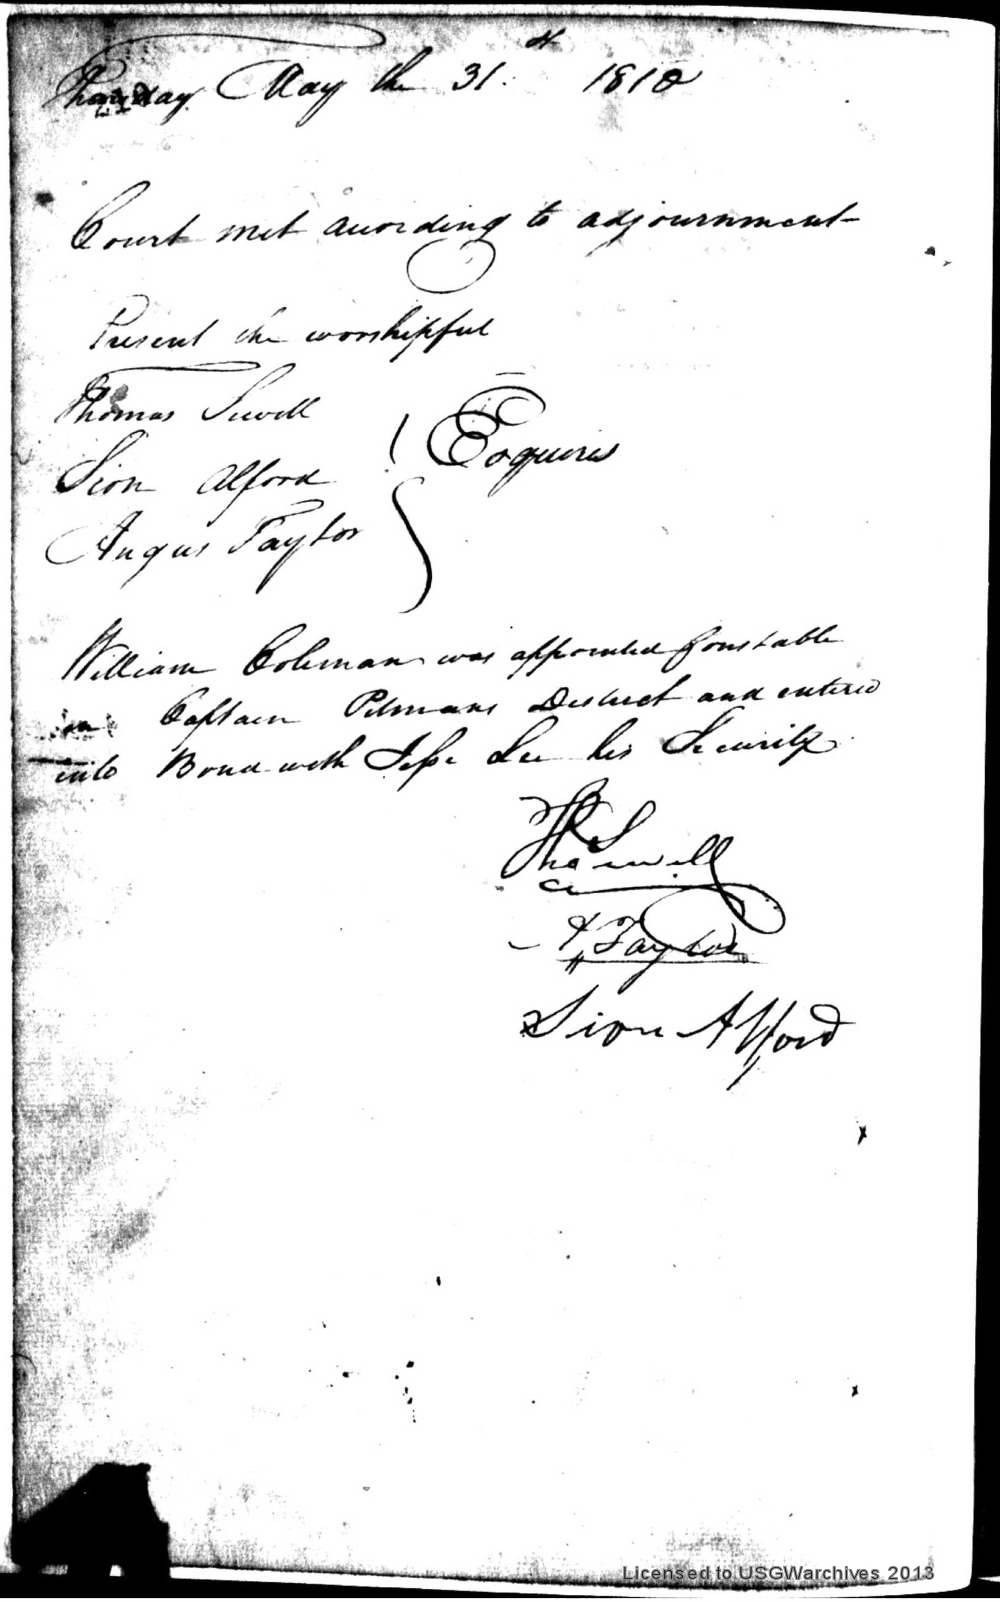 Thursday May the 31st 1810
Court met acording to adjournment
Present the worshipful
Thomas Sewell
Sion Alford
Esquires
Angus Taylor
William Coleman was appointed Constable
in Captain Pitmans District and entered
into Bond with Jesse Lee his Security
Tho Sewell
A Taylor
Sion Alford
Licensed to USGWarchives 2013